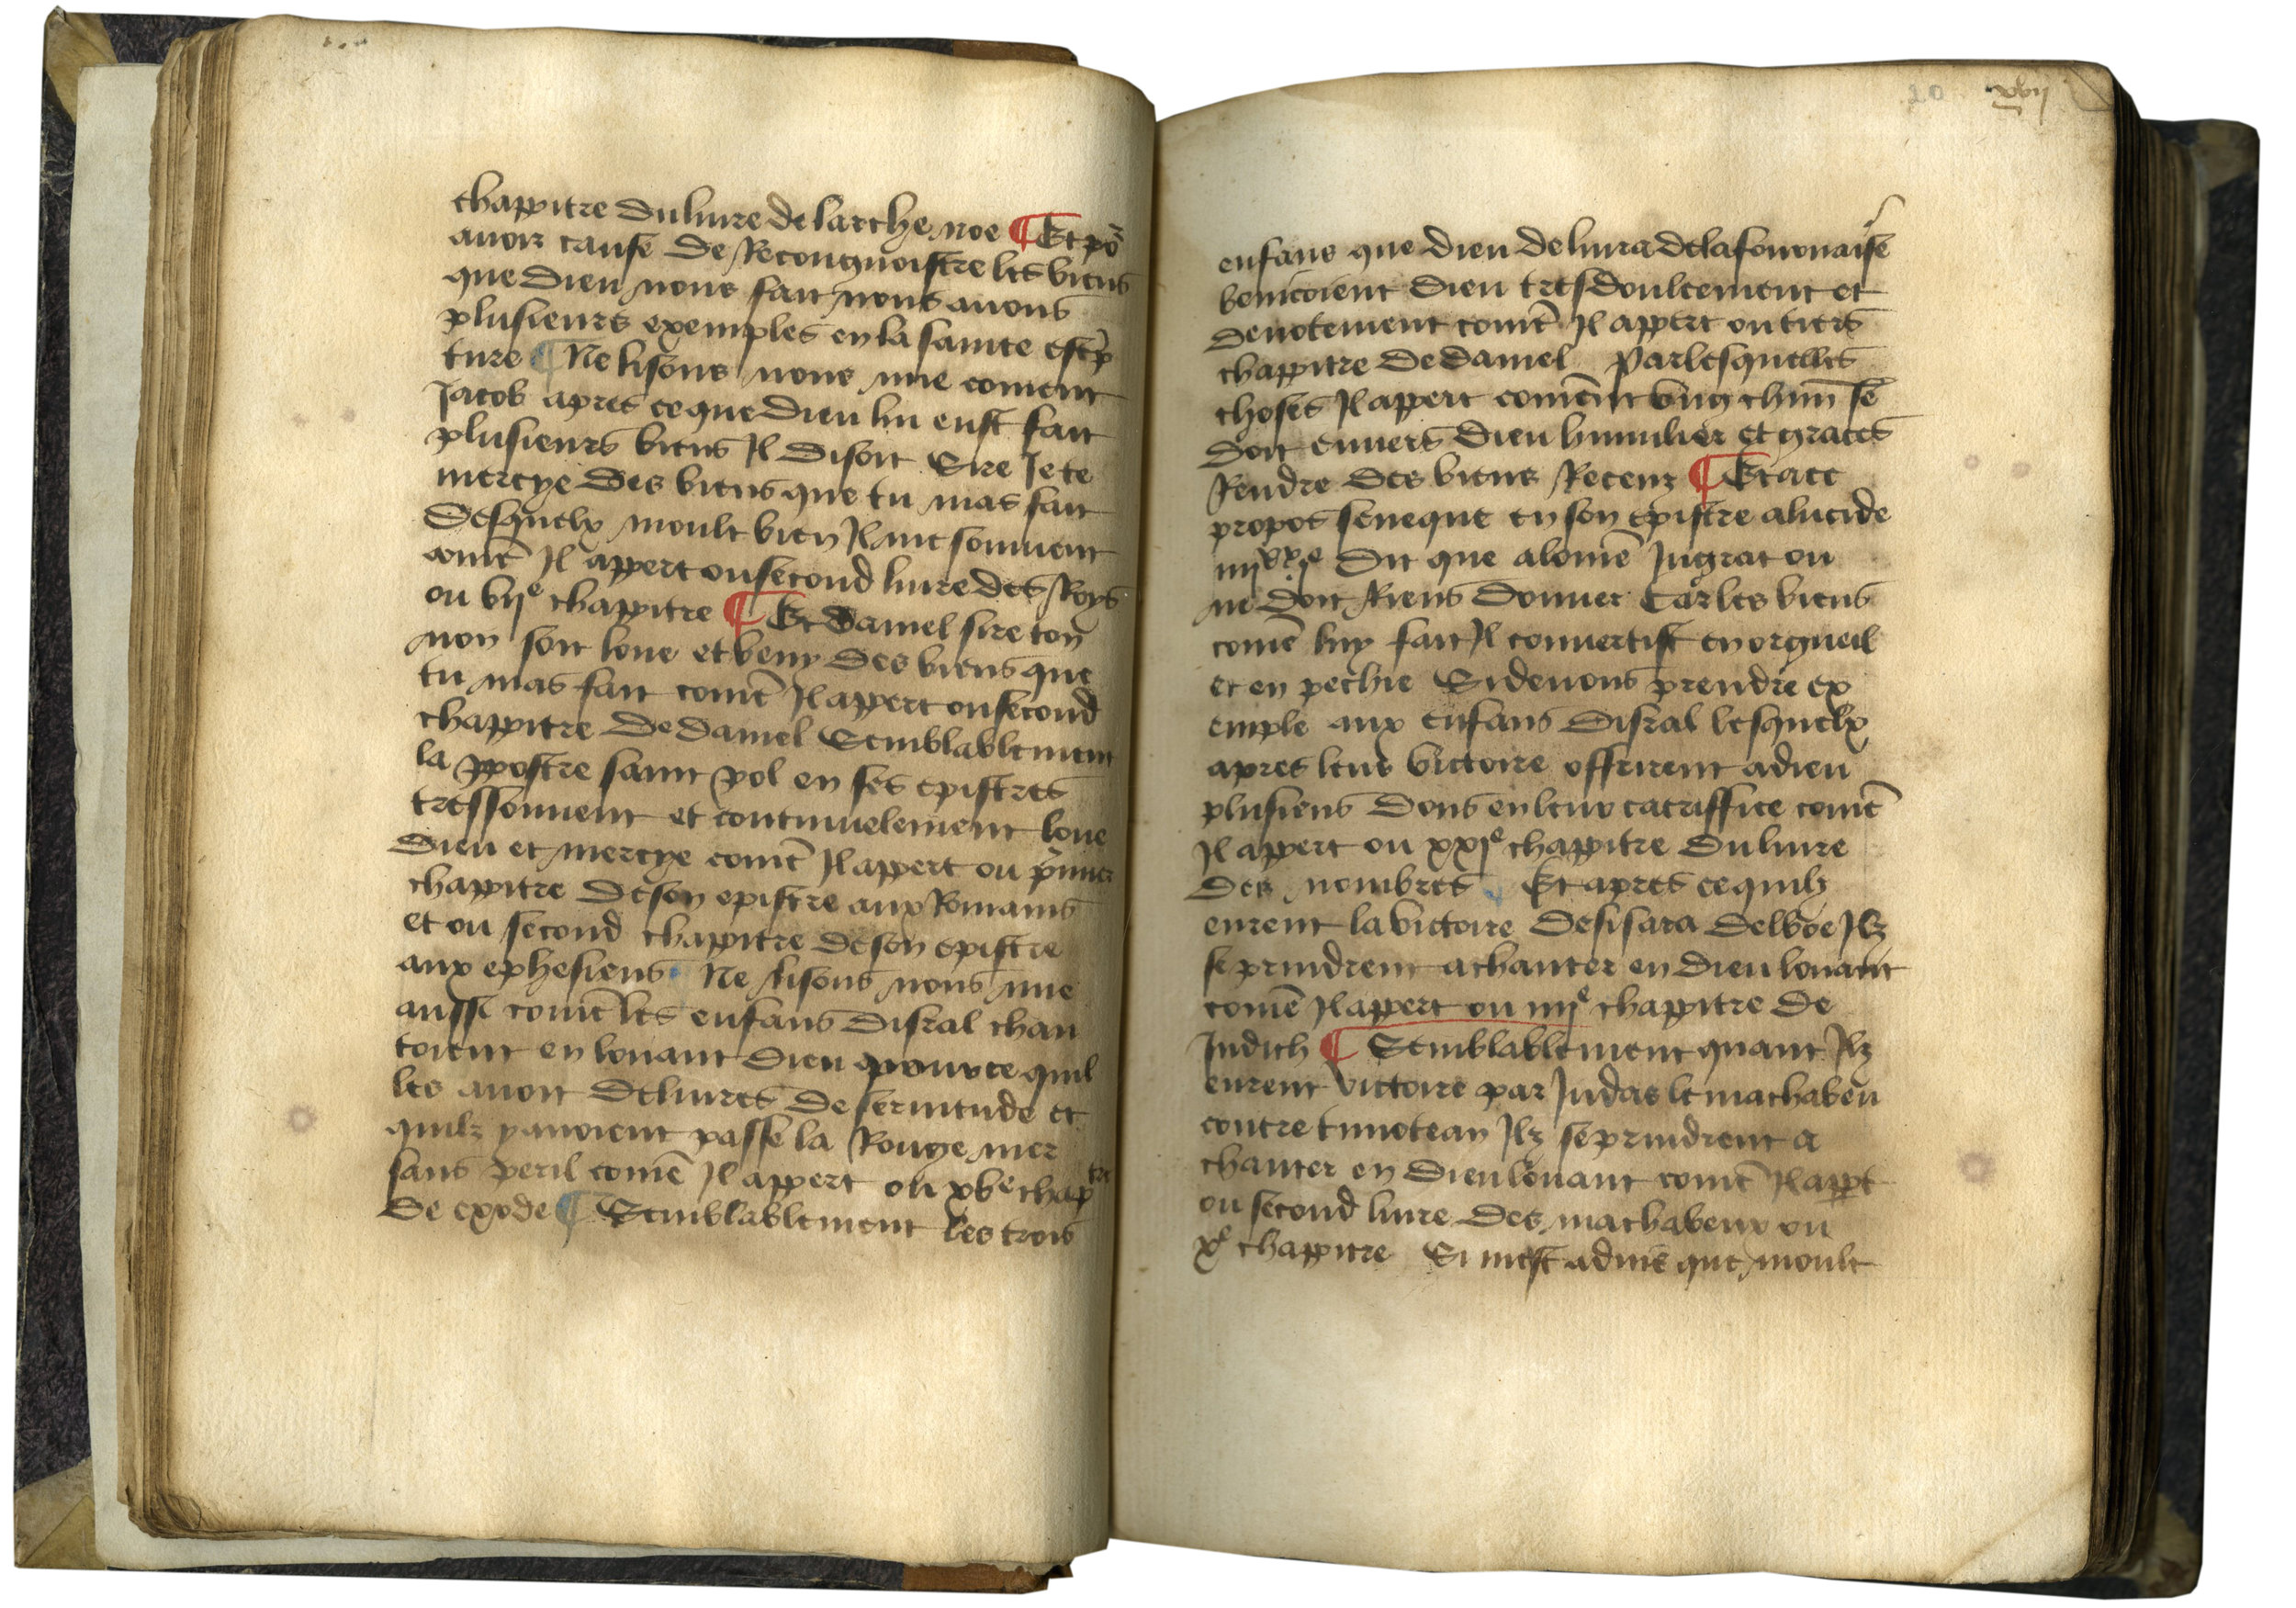 chappitre du livre de larche noe ¶ Et po᷑
avoir cause de Recongnoistre les biens
que dieu nous fait nous avons
plusieurs exemples en la sainte escⁱp
ture ¶ Ne lisons nous mie coment
Jacob apres ce que dieu lui eust fait
plusieurs biens Il disoit Sire Je te
mercye des biens que tu mas fait
desquelx moult bien Il me souvient
comē Il appert ou second livre des Roys
ou vijᵉ chappitre ¶ Et daniel sire ton
non soit loue et beny des biens que
tu mas fait comē Il appert ou second
chappitre de daniel Semblablement
lappostre saint pol en ses epistres
tressouvent et continuelement loue
dieu et mercye comē Il appert ou pⁱmier
chappitre de son epistre aux Romains
et ou second chappitre de son epistre
aux ephesiens Ne lisons nous mie
aussi comē les enfans disral chan
toient en louant dieu pour ce quil
les avoit delivres de servitude et
quilz avoient passe la Rouge mer
sans peril comē Il appert ou xvᵉ chapᵗʳᵉ
de exode ¶ Semblablement les trois
20 xvij
enfans que dieu delivra de la fournaise
benicoient dieu tresdoulcement et
devotement comē Il appert ou tiers
chappitre de daniel Par lesquelles
choses Il appert coment ung chun̄ se
doit envers dieu humilier et graces
Rendre des biens Receuz ¶ Et a ce
propos seneque en son epistre a lucide
iiijˣˣjᵉ dit que a lomē Ingrat on
ne doit Riens donner Car les biens
comē luy fait Il convertist en orgueil
et en pechie Si devons prendre ex
emple aux enfans disral lesquelx
apres leur victoire offrirent a dieu
plusieurs dons en leur sacriffice comē
Il appert ou xxjᵉ chappitre du livre
des nombres Et apres ce quilz
eurent la victoire de sisara delboe Ilz
se prindrent a chanter en dieu louant
comē Il appert ou iiijᵉ chappitre de
Judich ¶ Semblablement quant Ilz
eurent victoire par Judas le machabeu
contre timotean Ilz se prindrent a
chanter en dieu louant comē Il appt
ou second livre des machabeux ou
xᵉ chappitre Si mest advis que moult